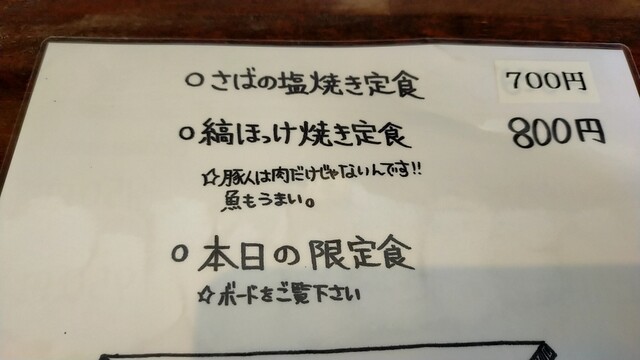 ○さばの塩焼き定食 700円
○縞ほっけ焼き定食 800円
☆豚人は肉だけじゃないんです!!
魚もうまい。
○本日の限定食
☆ボードをご覧下さい